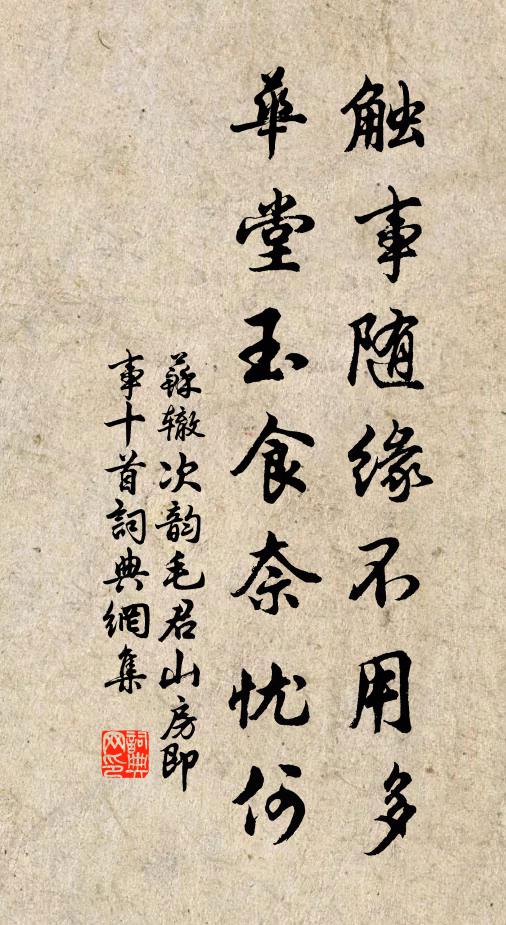 触事随缘不用多
華堂玉食奈忧何
蘇辙次韵毛君山房即
事十首詞典網集
詞典網印